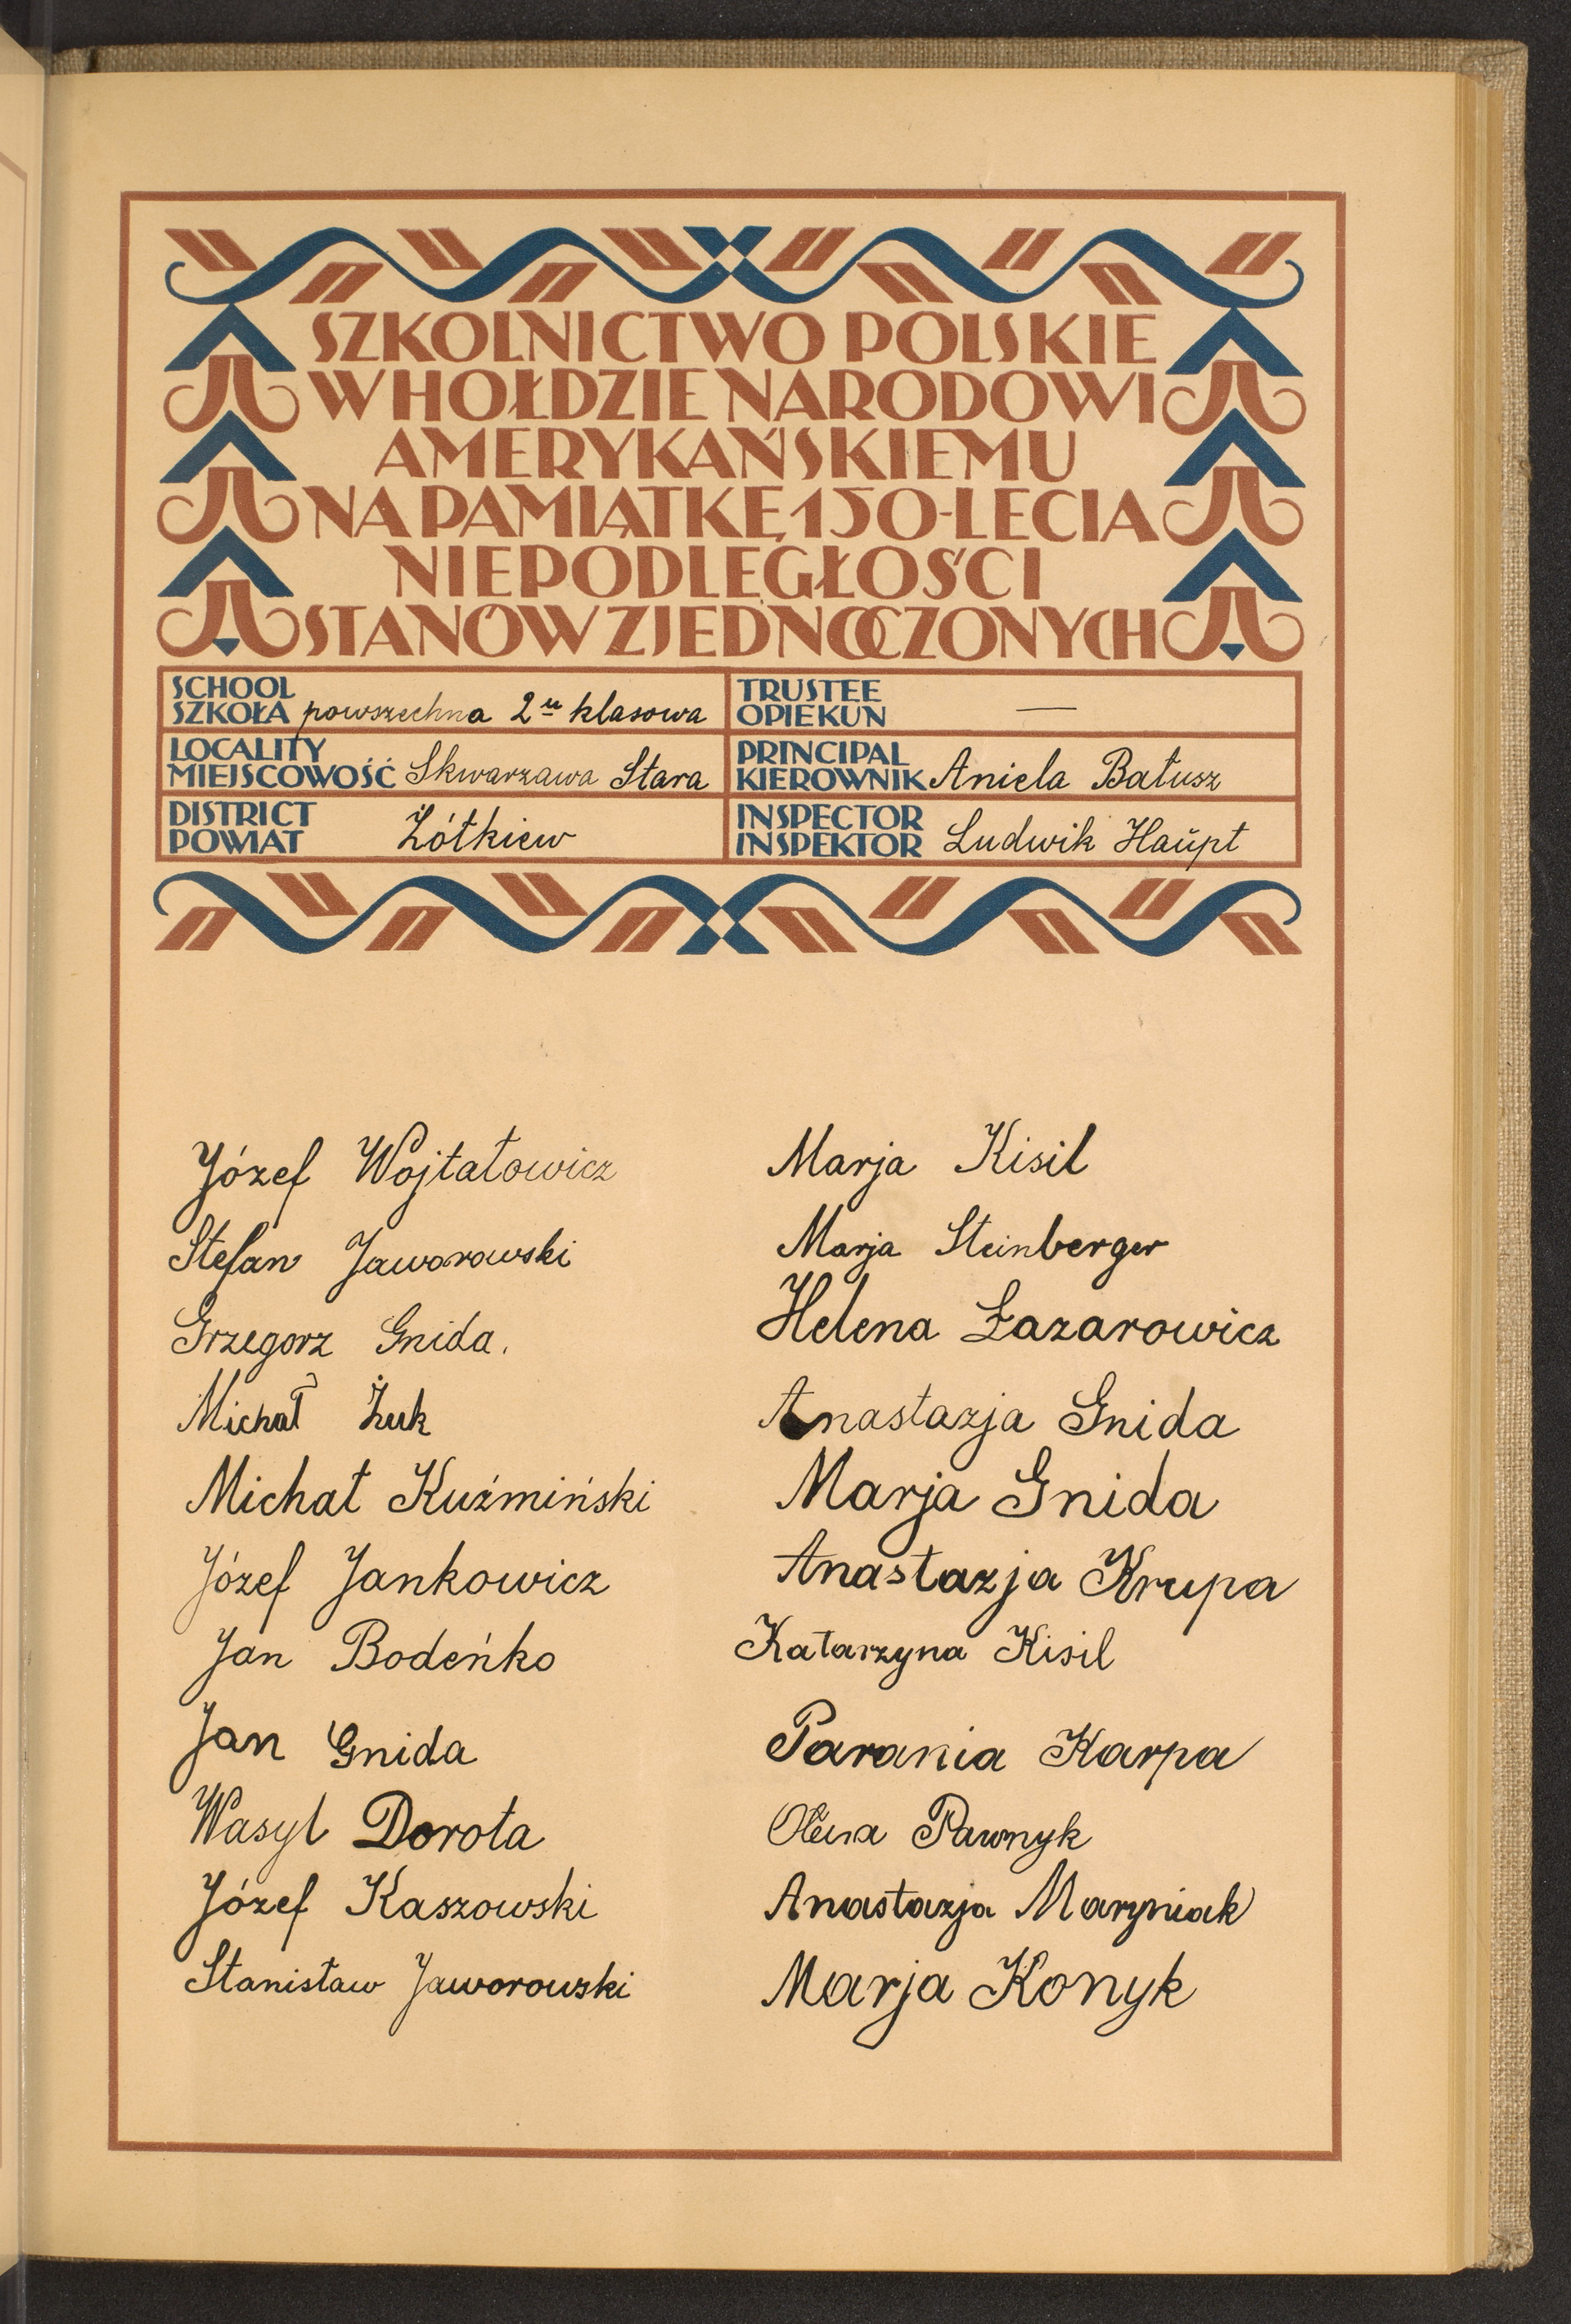 SZKOLNICTWO POLSKIE
W HOŁDZIE NARODOWI
AMERYKAŃSKIEMU
NA PAMIĄTKĘ 150-LECIA
NIEPODLEGŁOŚCI
STANÓW ZJEDNOCZONYCH
SCHOOL
SZKOŁA powszechna 2u klasowa
TRUSTEE
OPIEKUN —
LOCALITY
MIEJSCOWOŚĆ Skwarzawa Stara
PRINCIPAL
KIEROWNIK Aniela Bałusz
DISTRICT
POWIAT Żółkiew
INSPECTOR
INSPEKTOR Ludwik Haŭpt
Józef Wojtałowicz
Stefan Jaworowski
Grzegorz Gnida.
Michał Żuk
Michał Kuźmiński
Józef Jankowicz
Jan Bodeńko
Jan Gnida
Wasyl Dorota
Józef Kaszowski
Stanisław Jaworowski
Marja Kisil
Marja Steinberger
Helena Łazarowicz
Anastazja Gnida
Marja Gnida
Anastazja Krupa
Katarzyna Kisil
Parania Karpa
Olena Pawnyk
Anastazja Maryniak
Marja Konyk